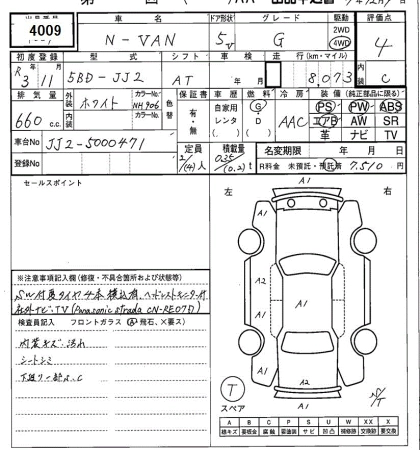 4009
車名
ドア形状
グレード
駆動
評価点
N-VAN
5V
G
2WD
4WD
4
初度登録
型式
シフト
車検
走行(km・マイル)
内装
R3
11月
5BD-JJ2
AT
年
月
8,073
C
排気量
外装
カラーNo.
色替
保証書
車歴
燃料
冷房
装備(純正部品に限る)
660 c.c.
ホワイト
NH906
カラーNo.
有・無
自家用
レンタ
G・D
AAC
PS PW ABS
エアB AW SR
革 ナビ TV
車台No
JJ2-5000471
登録No
定員
2/(4)人
積載量
0.35(0.2)t
名変期限
年 月 日
R料金 未預託・預託済 7,510円
セールスポイント
左
右
A1
A1
A1
A2
A1
A1
A1
A2
A1
T
スペア
※注意事項記入欄(修復・不具合箇所および状態)
S/W付夏タイヤ4本積込有、ヘッドレストモニター付
社外ナビ・TV(Panasonic strada CN-RE07D)
検査員記入
フロントガラス(A飛石、X要ス)
内装キズ・汚れ
シートシミ
下廻り一部S、C
A B C E S U W X XX
線キズ 要板金 腐蝕 要塗装 サビ 凹凸 補修跡 交換跡 要交換